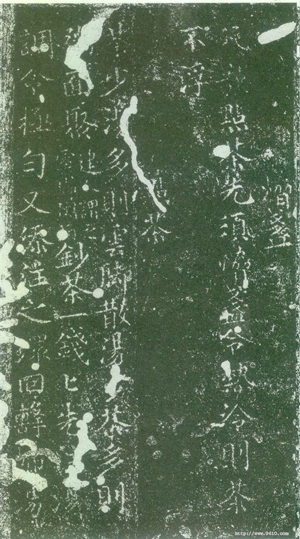 熁盞
凡欲點茶先須熁盞令熱冷則茶
不浮
點茶
茶少湯多則雲脚散湯少茶多則
面聚建鈔茶一錢匕先湯
調令極勻又添注之環回擊拂湯